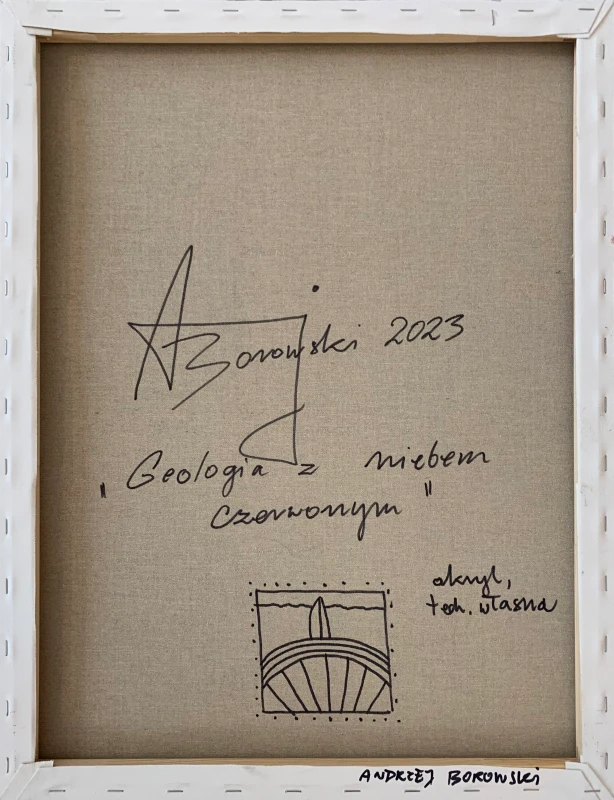 A Borowski 2023
"Geologia z niebem
czerwonym"
akryl,
tech. własna
ANDRZEJ BOROWSKI